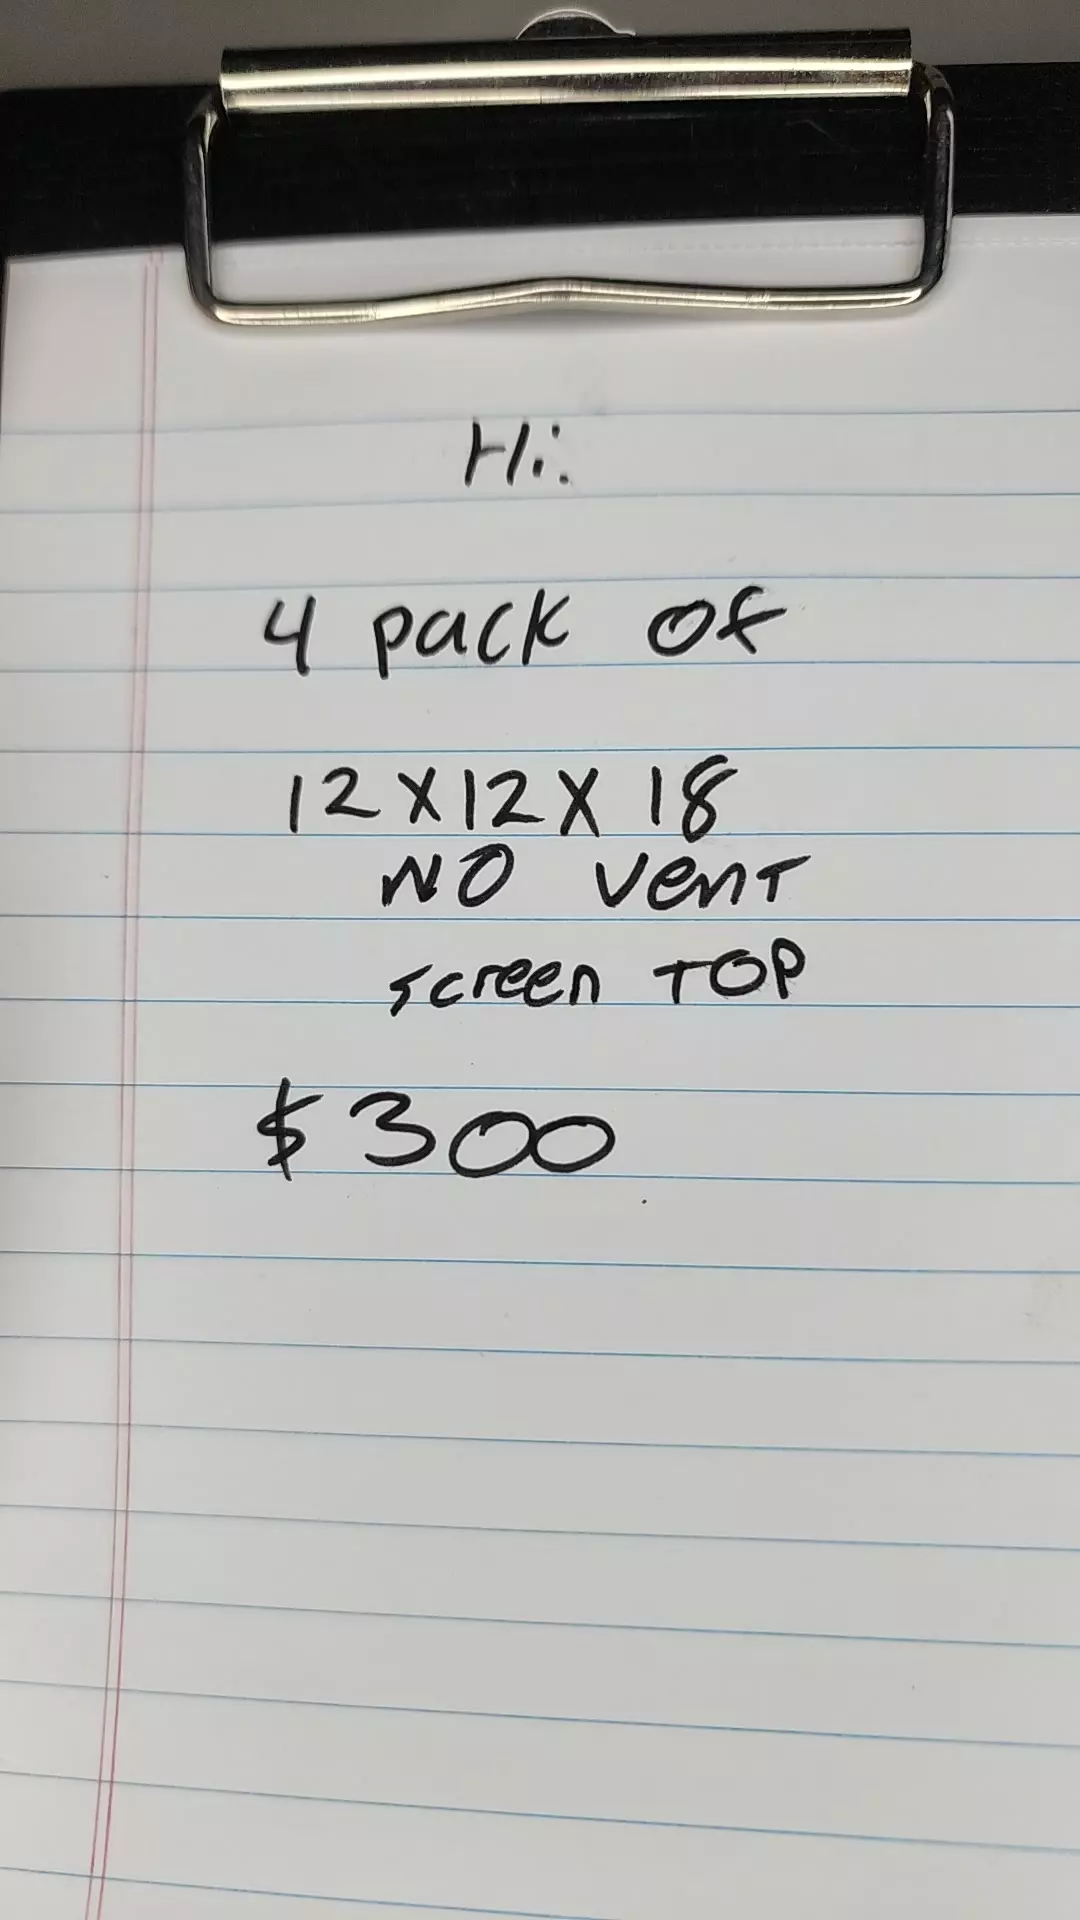 Hi:
4 pack of
12 x 12 x 18
NO Vent
screen TOP
$300